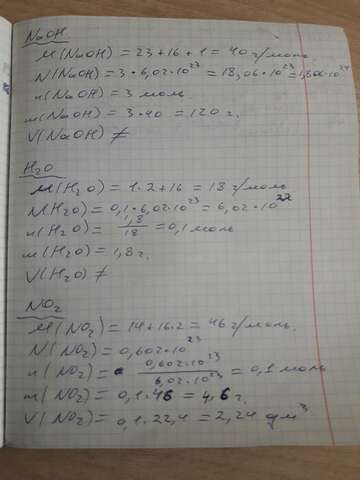 NaOH.
M(NaOH) = 23+16+1 = 40 г/моль.
N(NaOH) = 3·6,02·10²³ = 18,06·10²³ = 1,806·10²⁴
n(NaOH) = 3 моль
m(NaOH) = 3·40 = 120 г.
V(NaOH) ≠
H₂O
M(H₂O) = 1·2+16 = 18 г/моль
N(H₂O) = 0,1·6,02·10²³ = 6,02·10²²
n(H₂O) = 1,8/18 = 0,1 моль
m(H₂O) = 1,8 г.
V(H₂O) ≠
NO₂
M(NO₂) = 14+16·2 = 46 г/моль.
N(NO₂) = 0,602·10²³
n(NO₂) = 0,602·10²³/6,02·10²³ = 0,1 моль
m(NO₂) = 0,1·46 = 4,6 г.
V(NO₂) = 0,1·22,4 = 2,24 дм³